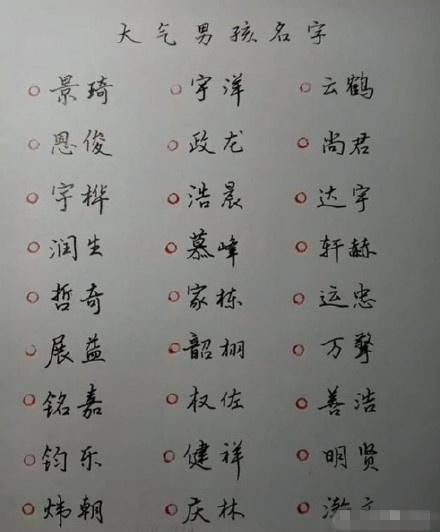 大气男孩名字
景琦 宇洋 云鹤
恩俊 政龙 尚君
宇桦 浩晨 达宇
润生 慕峰 轩赫
哲奇 家栋 运忠
展益 韶栩 万擎
铭嘉 权佐 善浩
钧乐 健祥 明贤
炜朝 庆林